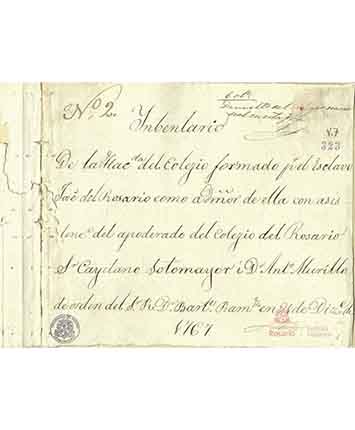 N.º 2.
Inbentario
V.7
323
De la Hac.da del Colegio formado p.r el Esclavo
Jac.º del Rosario como adm.or de ella con asis
tenc.ª del apoderado del Colegio del Rosario
S.r Cayetano Sotomayor i D.n Ant.º Murillo
de orden del S.r R.r D.n Bart.e Ram.z en 21 de Diz.e de
1767
Rosario